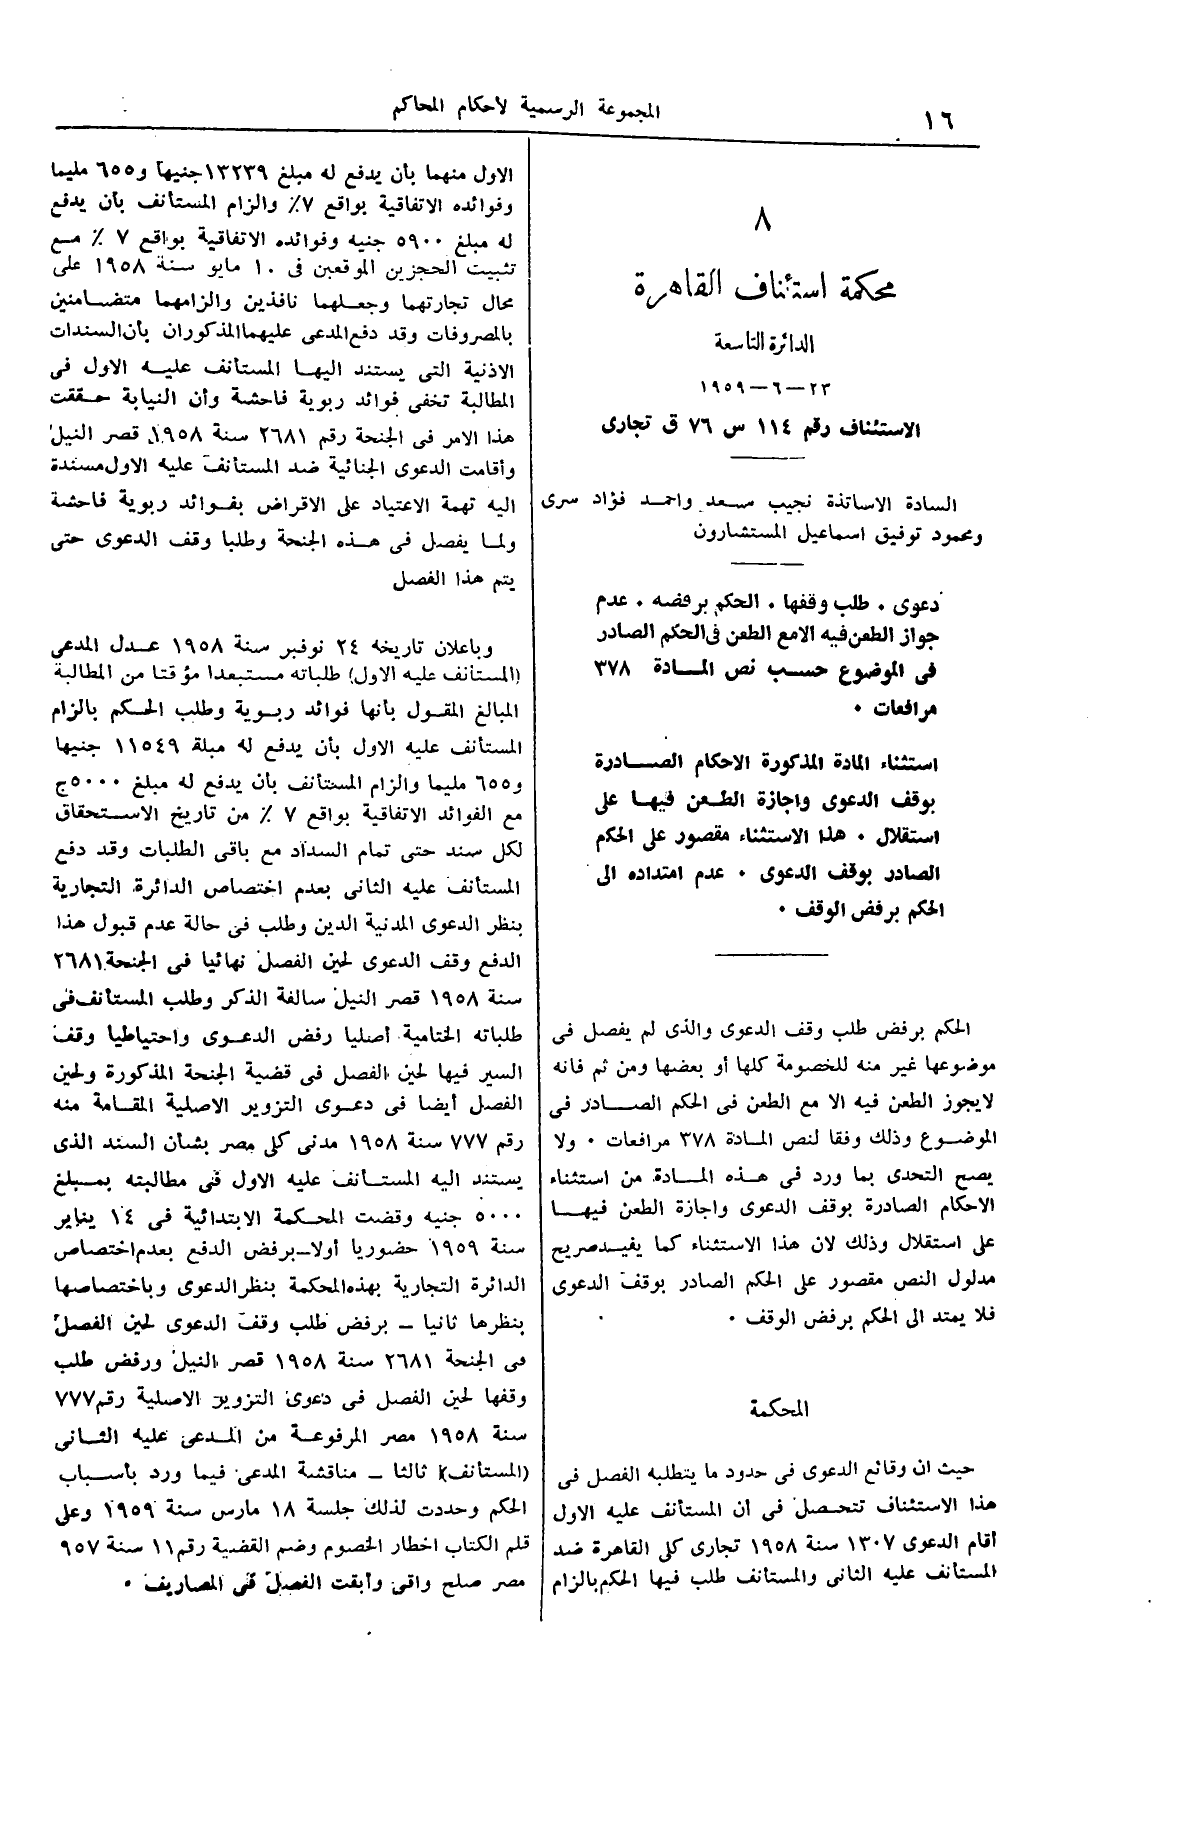 ١٦
المجموعة الرسمية لأحكام المحاكم
٨
محكمة استئناف القاهرة
الدائرة التاسعة
٢٣ - ٦ - ١٩٥٩
الاستئناف رقم ١١٤ س ٧٦ ق تجارى
السادة الاساتذة نجيب سعد واحمد فؤاد سرى
ومحمود توفيق اسماعيل المستشارون
دعوى . طلب وقفها . الحكم برفضه . عدم
جواز الطعن فيه الامع الطعن فى الحكم الصادر
فى الموضوع حسب نص المادة ٣٧٨
مرافعات .
استثناء المادة المذكورة الاحكام الصادرة
بوقف الدعوى واجازة الطعن فيها على
استقلال . هذا الاستثناء مقصور على الحكم
الصادر بوقف الدعوى . عدم امتداده الى
الحكم برفض الوقف .
الحكم برفض طلب وقف الدعوى والذى لم يفصل فى
موضوعها غير منه للخصومة كلها أو بعضها ومن ثم فانه
لايجوز الطعن فيه الا مع الطعن فى الحكم الصادر فى
الموضوع وذلك وفقا لنص المادة ٣٧٨ مرافعات . ولا
يصح التحدى بما ورد فى هذه المادة من استثناء
الاحكام الصادرة بوقف الدعوى واجازة الطعن فيها
على استقلال وذلك لان هذا الاستثناء كما يفيد صريح
مدلول النص مقصور على الحكم الصادر بوقف الدعوى
فلا يمتد الى الحكم برفض الوقف .
المحكمة
حيث ان وقائع الدعوى فى حدود ما يتطلبه الفصل فى
هذا الاستئناف تتحصل فى أن المستأنف عليه الاول
أقام الدعوى ١٣٠٧ سنة ١٩٥٨ تجارى كلى القاهرة ضد
المستأنف عليه الثانى والمستانف طلب فيها الحكم بالزام
الاول منهما بأن يدفع له مبلغ ١٣٢٣٩ جنيها و٦٥٥ مليما
وفوائده الاتفاقية بواقع ٧٪ والزام المستأنف بأن يدفع
له مبلغ ٥٩٠٠ جنيه وفوائده الاتفاقية بواقع ٧ ٪ مع
تثبيت الحجزين الموقعين فى ١٠ مايو سنة ١٩٥٨ على
محال تجارتهما وجعلهما نافذين والزامهما متضامنين
بالمصروفات وقد دفع المدعى عليهما المذكوران بأن السندات
الاذنية التى يستند اليها المستأنف عليه الاول فى
المطالبة تخفى فوائد ربوية فاحشة وأن النيابة حققت
هذا الامر فى الجنحة رقم ٢٦٨١ سنة ١٩٥٨ قصر النيل
وأقامت الدعوى الجنائية ضد المستأنف عليه الاول مسندة
اليه تهمة الاعتياد على الاقراض بفوائد ربوية فاحشة
ولما يفصل فى هذه الجنحة وطلبا وقف الدعوى حتى
يتم هذا الفصل
وباعلان تاريخه ٢٤ نوفبر سنة ١٩٥٨ عدل المدعى
(المستأنف عليه الاول) طلباته مستبعدا مؤقتا من المطالبة
المبالغ المقول بأنها فوائد ربوية وطلب الحكم بالزام
المستأنف عليه الاول بأن يدفع له مبلغ ١١٥٤٩ جنيها
و٦٥٥ مليما والزام المستأنف بأن يدفع له مبلغ ٥٠٠٠ج
مع الفوائد الاتفاقية بواقع ٧ ٪ من تاريخ الاستحقاق
لكل سند حتى تمام السداد مع باقى الطلبات وقد دفع
المستأنف عليه الثانى بعدم اختصاص الدائرة التجارية
بنظر الدعوى المدنية الدين وطلب فى حالة عدم قبول هذا
الدفع وقف الدعوى لحين الفصل نهائيا فى الجنحة ٢٦٨١
سنة ١٩٥٨ قصر النيل سالفة الذكر وطلب المستأنف فى
طلباته الختامية أصليا رفض الدعوى واحتياطيا وقف
السير فيها لحين الفصل فى قضية الجنحة المذكورة ولحين
الفصل أيضا فى دعوى التزوير الاصلية المقامة منه
رقم ٧٧٧ سنة ١٩٥٨ مدنى كلى مصر بشأن السند الذى
يستند اليه المستأنف عليه الاول فى مطالبته بمبلغ
٥٠٠٠ جنيه وقضت المحكمة الابتدائية فى ١٤ يناير
سنة ١٩٥٩ حضوريا أولا – برفض الدفع بعدم اختصاص
الدائرة التجارية بهذه المحكمة بنظر الدعوى وباختصاصها
بنظرها ثانيا – برفض طلب وقف الدعوى لحين الفصل
فى الجنحة ٢٦٨١ سنة ١٩٥٨ قصر النيل ورفض طلب
وقفها لحين الفصل فى دعوى التزوير الاصلية رقم ٧٧٧
سنة ١٩٥٨ مصر المرفوعة من المدعى عليه الثانى
(المستأنف) ثالثا – مناقشة المدعى فيما ورد بأسباب
الحكم وحددت لذلك جلسة ١٨ مارس سنة ١٩٥٩ وعلى
قلم الكتاب اخطار الخصوم وضم القضية رقم ١١ سنة ٩٥٧
مصر صلح واقى وأبقت الفصل فى المصاريف .